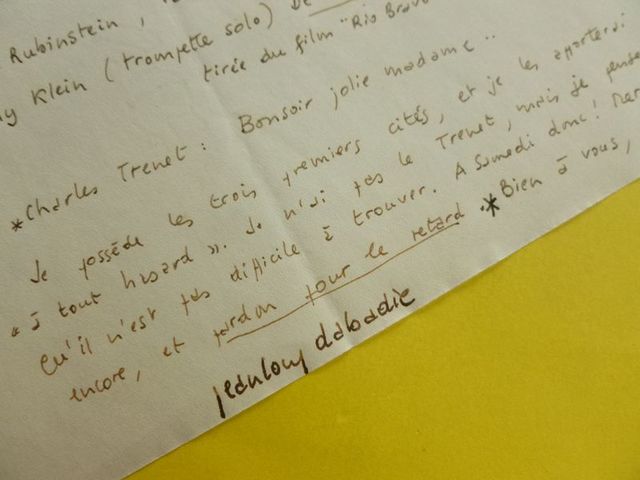 Rubinstein,
y Klein (trompette solo) De
tirée du film "Rio Bravo
*Charles Trenet : Bonsoir jolie madame"
Je possède les trois premiers cités, et je les apporterai
"à tout hasard". Je n'ai pas le Trenet, mais je pense
qu'il n'est pas difficile à trouver. A Samedi donc! Mer
encore, et pardon pour le retard. * Bien à vous,
jeanloup dabadie